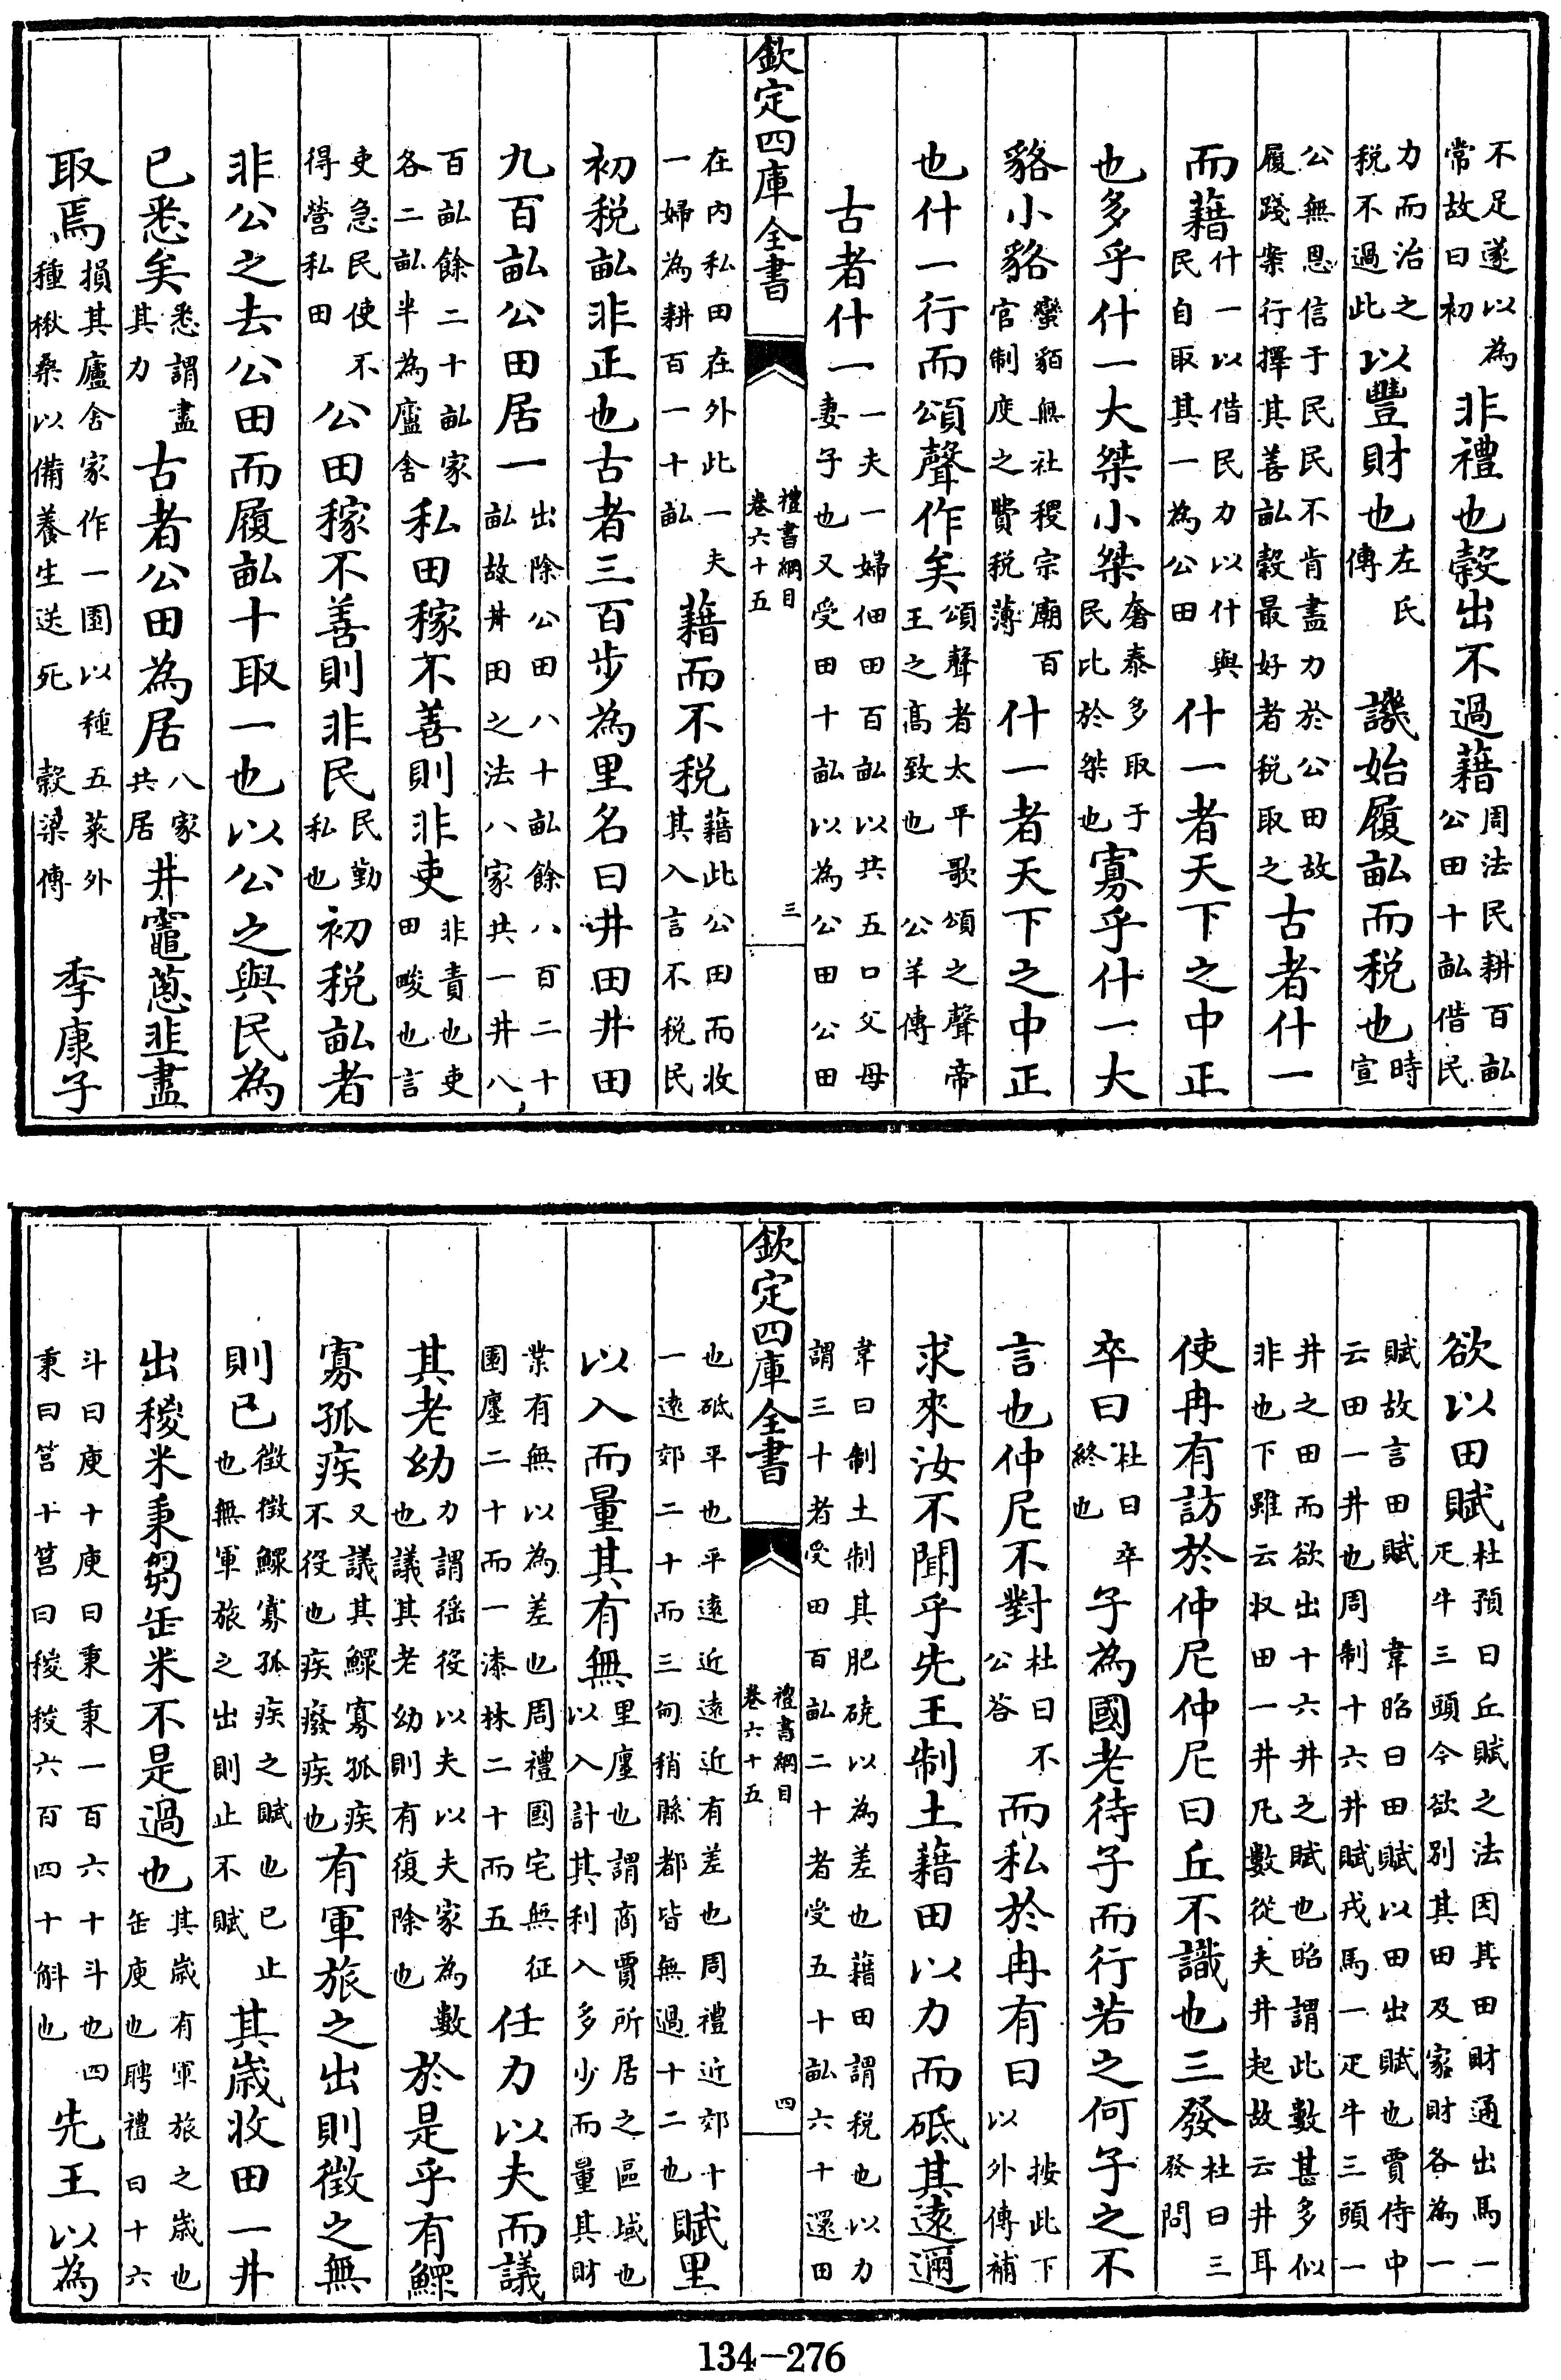 不足遂以為常故曰初非禮也榖出不過藉周法民耕百畝公田十畝借民
力而治之税不過此以豐財也左氏傳 譏始履畝而税也時宣
公無恩信于民民不肯盡力於公田故履踐案行擇其善畝榖最好者税取之古者什一
而藉什一以借民力以什與民自取其一為公田什一者天下之中正
也多乎什一大桀小桀奢泰多取于民比於桀也寡乎什一大
貉小貉蠻貊無社稷宗廟百官制度之費税薄什一者天下之中正
也什一行而頌聲作矣頌聲者太平歌頌之聲帝王之髙致也 公羊傳
古者什一一夫一婦佃田百畝以共五口父母妻子也又受田十畝以為公田公田
欽定四庫全書 禮書綱目 卷六十五 三
在内私田在外此一夫一婦為耕百一十畝藉而不税藉此公田而收其入言不税民
初税畝非正也古者三百步為里名曰井田井田
九百畝公田居一出除公田八十畝餘八百二十畝故井田之法八家共一井八
百畝餘二十畝家各二畝半為廬舍私田稼不善則非吏非責也吏田畯也言
吏急民使不得營私田公田稼不善則非民民勤私也初税畝者
非公之去公田而履畝十取一也以公之與民為
已悉矣悉謂盡其力古者公田為居八家共居井竈蔥韭盡
取焉損其廬舍家作一園以種五菜外種楸桑以備養生送死 榖梁傳 季康子
欲以田賦杜預曰丘賦之法因其田財通出馬一疋牛三頭今欲别其田及家財各為一
賦故言田賦 韋昭曰田賦以田出賦也賈侍中云田一井也周制十六井賦戎馬一疋牛三頭一
井之田而欲出十六井之賦也昭謂此數甚多似非也下雖云収田一井凡數從夫井起故云井耳
使冉有訪於仲尼仲尼曰丘不識也三發杜曰三發問
卒曰杜曰卒終也子為國老待子而行若之何子之不
言也仲尼不對杜曰不公荅而私於冉有曰按此下以外傳補
求來汝不聞乎先王制土藉田以力而砥其遠邇
韋曰制土制其肥磽以為差也藉田謂税也以力謂三十者受田百畝二十者受五十畝六十還田
欽定四庫全書 禮書綱目 卷六十五 四
也砥平也平逺近逺近有差也周禮近郊十一逺郊二十而三甸稍縣都皆無過十二也賦里
以入而量其有無里廛也謂商賈所居之區域也以入計其利入多少而量其財
業有無以為差也周禮國宅無征園廛二十而一漆林二十而五任力以夫而議
其老幼力謂徭役以夫以夫家為數也議其老幼則有復除也於是乎有鰥
寡孤疾又議其鰥寡孤疾不役也疾廢疾也有軍旅之出則徴之無
則已徴徴鰥寡孤疾之賦也已止也無軍旅之出則止不賦其歳收田一井
出稯米秉芻缶米不是過也其歳有軍旅之歳也缶庾也聘禮曰十六
斗曰庾十庾曰秉秉一百六十斗也四秉曰筥十筥曰稯稯六百四十斛也先王以為
134-276